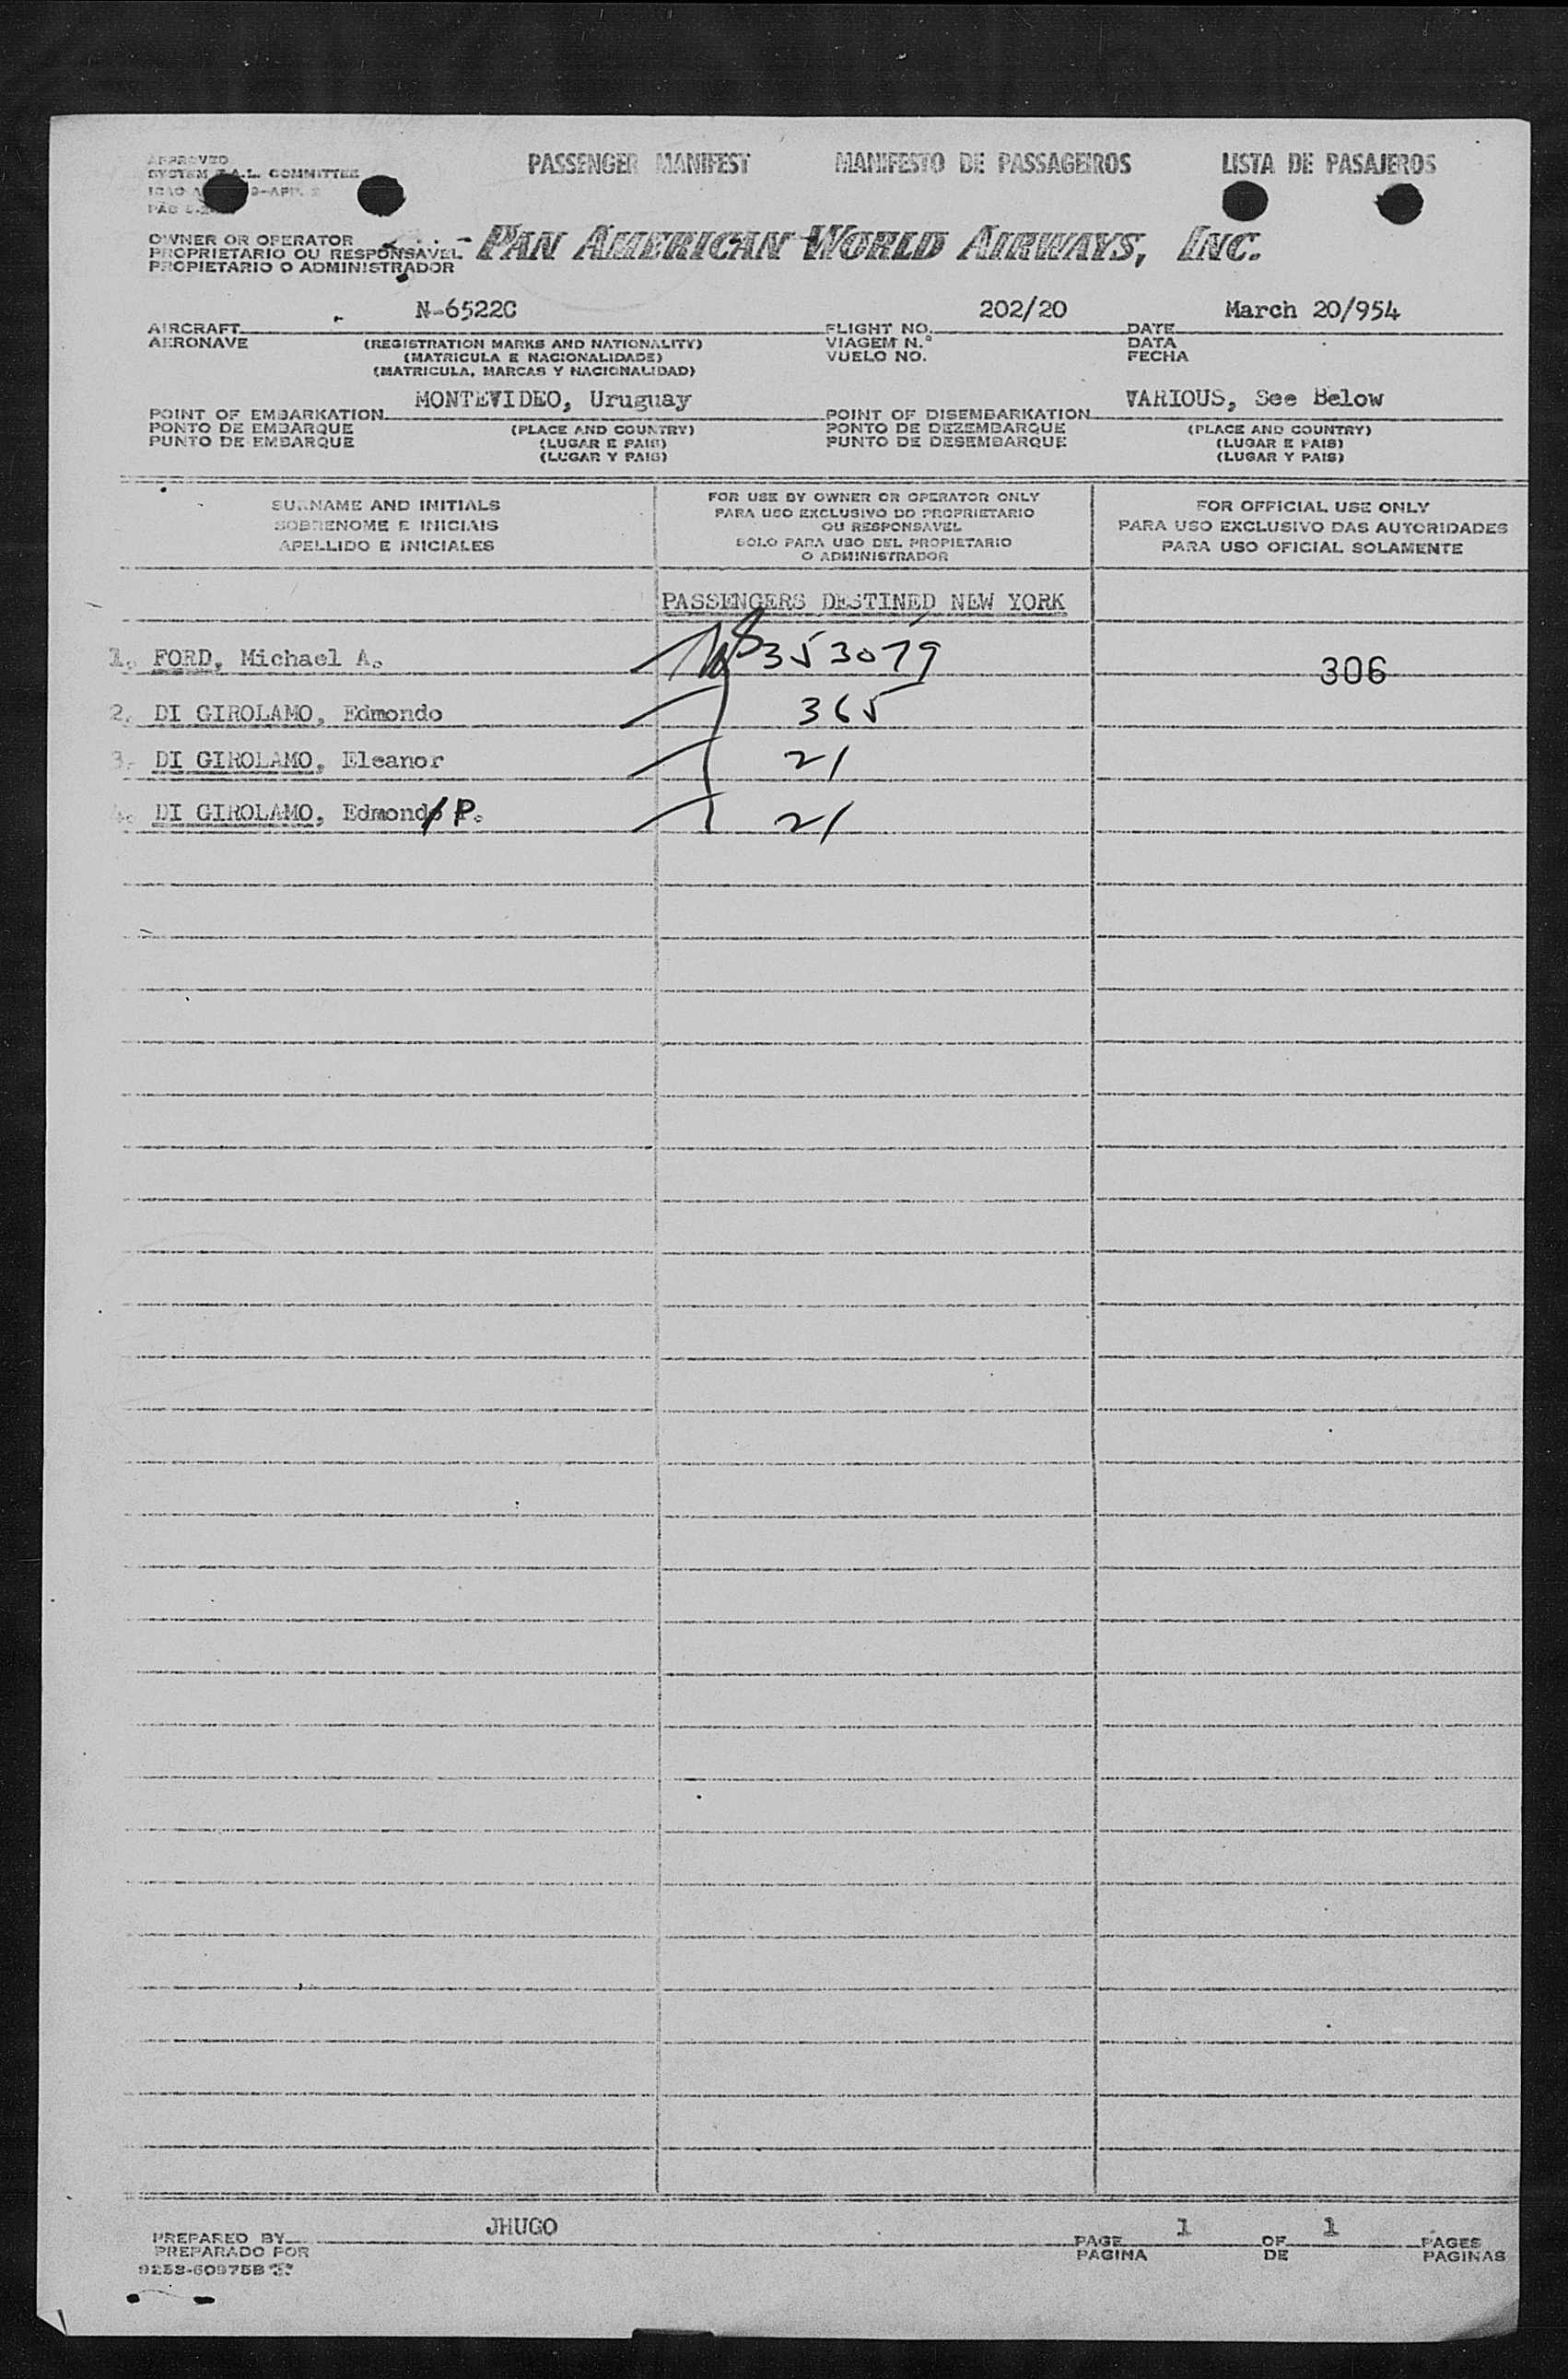 PASSENGER MANIFEST MANIFESTO DE PASSAGEIROS LISTA DE PASAJEROS
APPROVED
SYSTEM F.A.L. COMMITTEE
OWNER OR OPERATOR
PROPRIETARIO OU RESPONSAVEL
PROPIETARIO O ADMINISTRADOR
PAN AMERICAN WORLD AIRWAYS, INC.
N-6522C 202/20 March 20/954
AIRCRAFT FLIGHT NO. DATE
AERONAVE (REGISTRATION MARKS AND NATIONALITY) VIAGEM N.º DATA
(MATRICULA E NACIONALIDADE) VUELO NO. FECHA
(MATRICULA, MARCAS Y NACIONALIDAD)
MONTEVIDEO, Uruguay VARIOUS, See Below
POINT OF EMBARKATION POINT OF DISEMBARKATION
PONTO DE EMBARQUE (PLACE AND COUNTRY) PONTO DE DEZEMBARQUE (PLACE AND COUNTRY)
PUNTO DE EMBARQUE (LUGAR E PAIS) PUNTO DE DESEMBARQUE (LUGAR E PAIS)
(LUGAR Y PAIS) (LUGAR Y PAIS)
SURNAME AND INITIALS
SOBRENOME E INICIAIS
APELLIDO E INICIALES
FOR USE BY OWNER OR OPERATOR ONLY
PARA USO EXCLUSIVO DO PROPRIETARIO
OU RESPONSAVEL
SOLO PARA USO DEL PROPIETARIO
O ADMINISTRADOR
FOR OFFICIAL USE ONLY
PARA USO EXCLUSIVO DAS AUTORIDADES
PARA USO OFICIAL SOLAMENTE
PASSENGERS DESTINED NEW YORK
1. FORD, Michael A. 353079 306
2. DI GIROLAMO, Edmondo 365
3. DI GIROLAMO, Eleanor 21
4. DI GIROLAMO, Edmond P. 21
JHUGO 1 1
PREPARED BY PAGE OF PAGES
PREPARADO POR PAGINA DE PAGINAS
9253-60975B